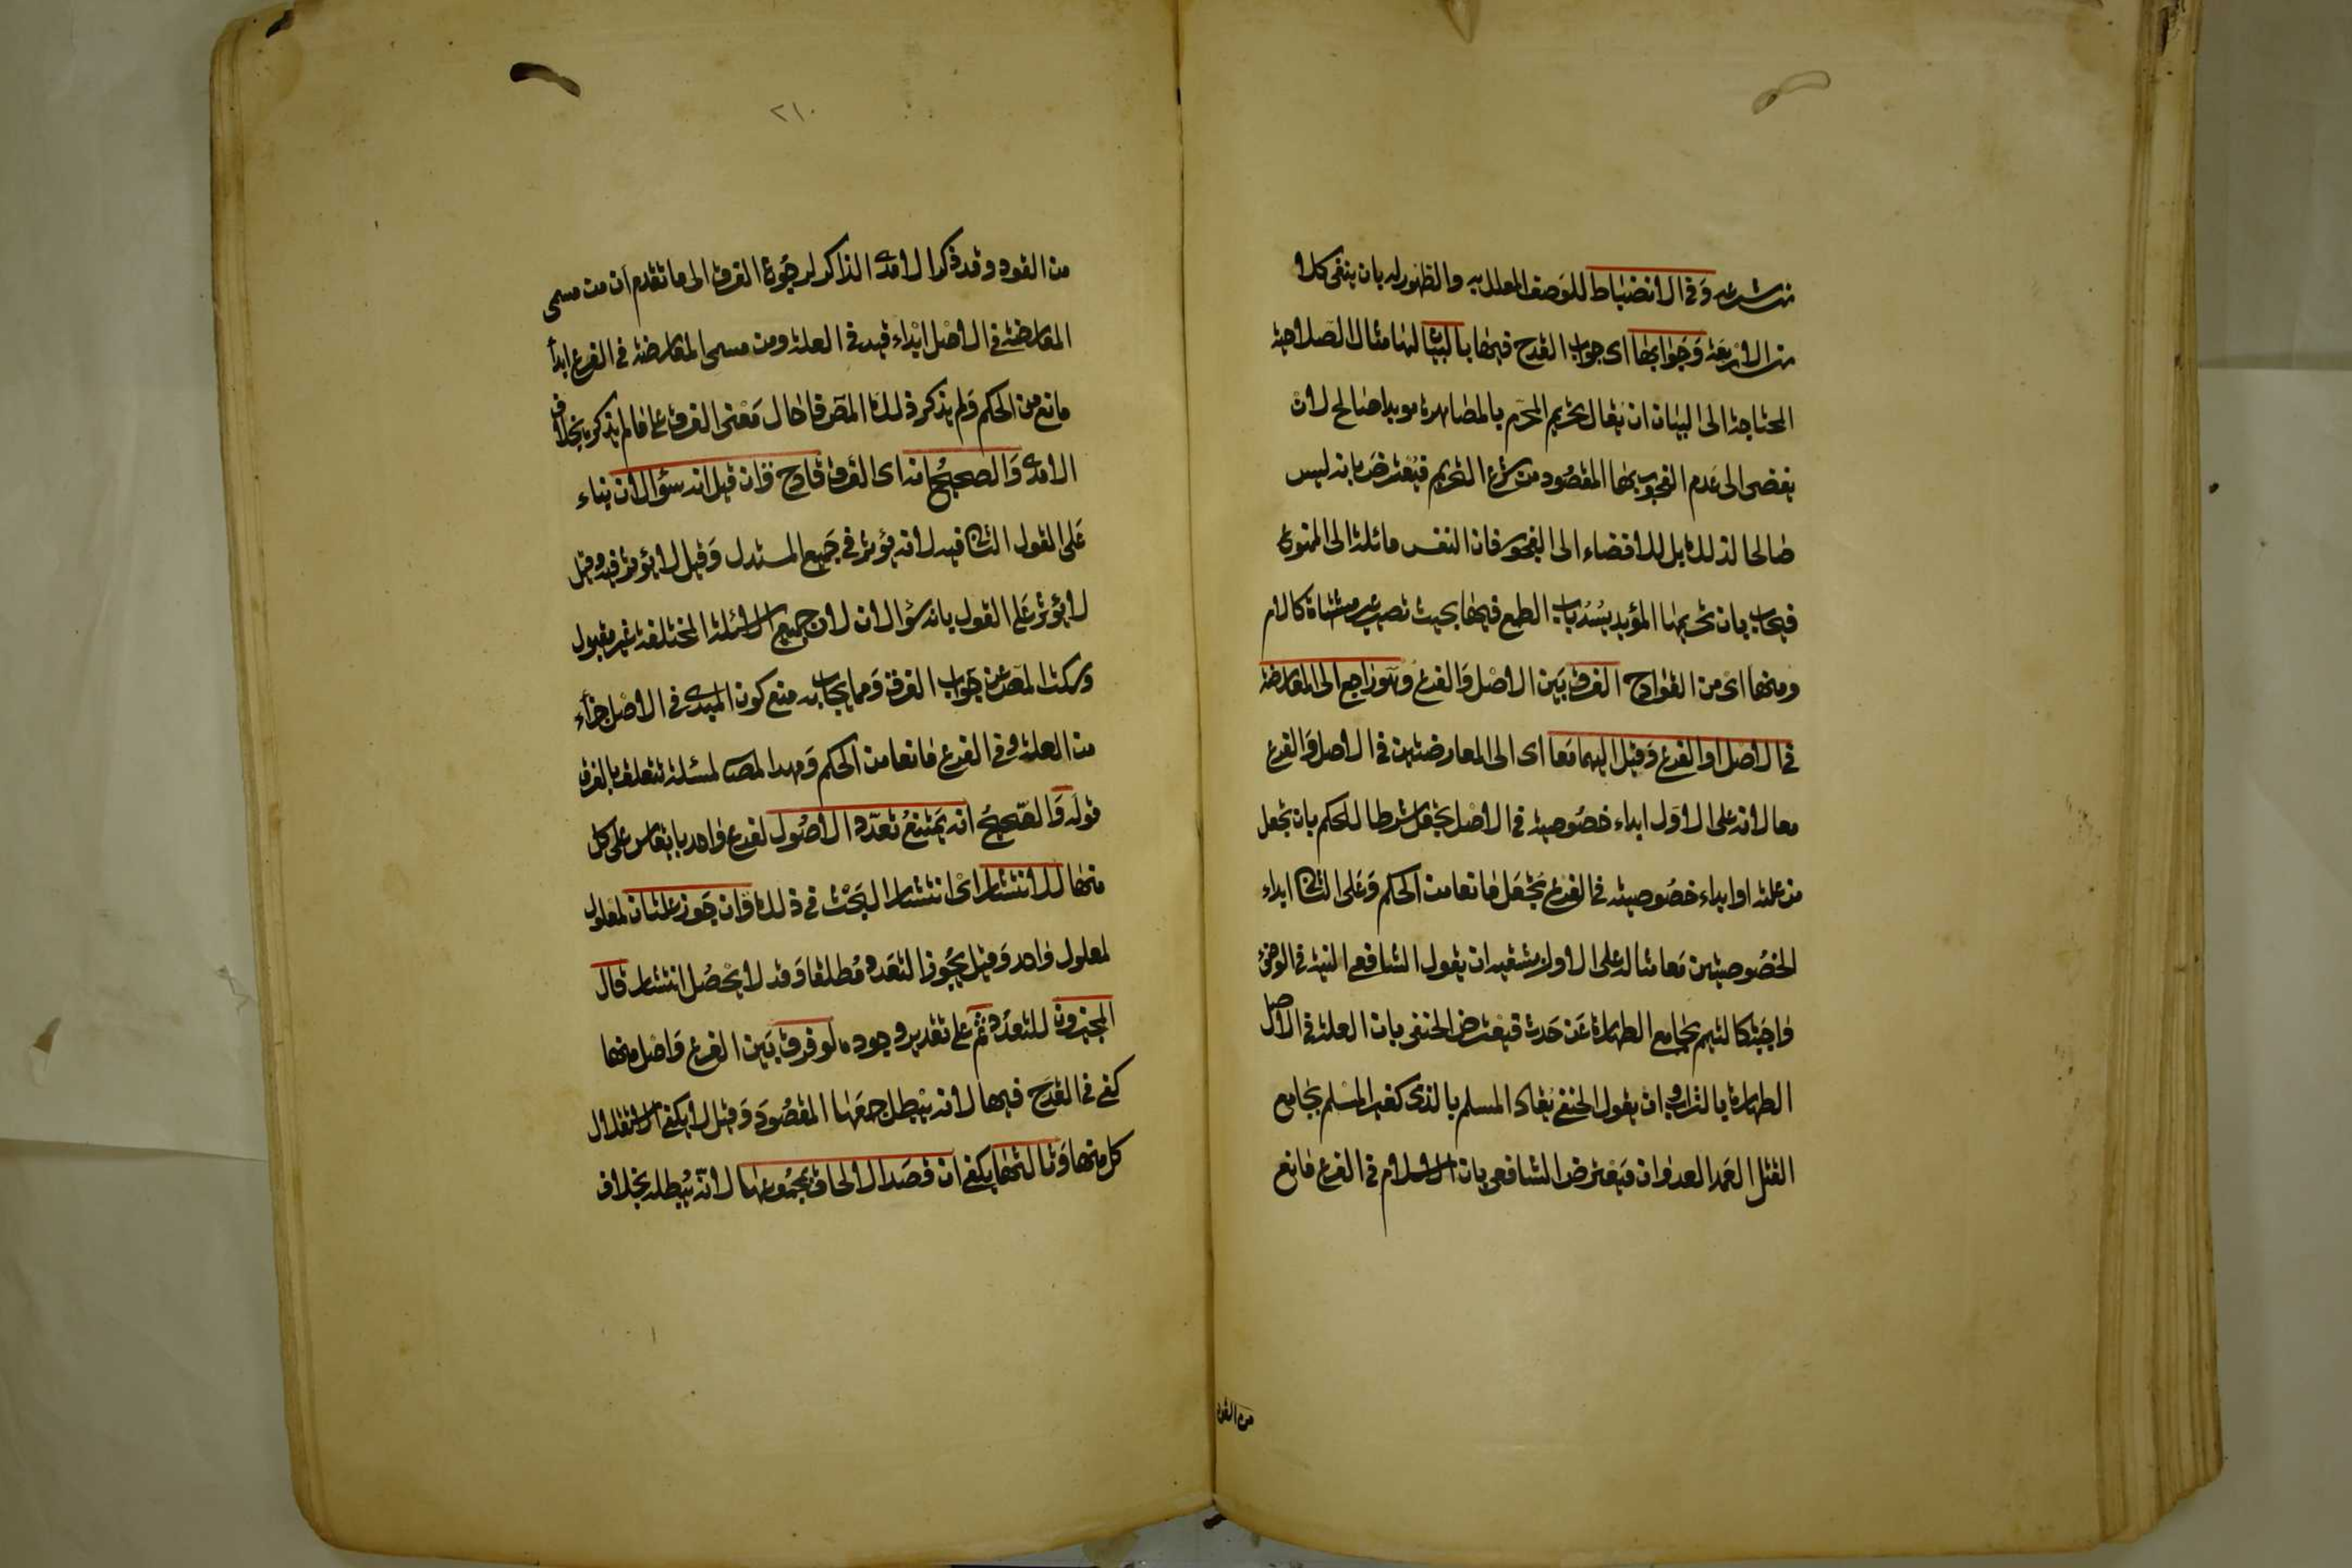 من شرعه وفي الانضباط للوصف المعلل به والظهور له بان ينفى كلا
من الاربعة وجوابها اى جواب القدح فيها بالبيان لها مثال الصلاحية
المحتاجة الى البيان ان يقال تحريم المحرم بالمصاهرة موبدا صالح لان
يفضى الى عدم الفجور بها المقصود من شرع التحريم فيعترض بانه ليس
صالحا لذلك بل للافضاء الى الفجور فان النفس مائلة الى الممنوع
فيجاب بان تحريمها المؤبد يسد باب الطمع فيها بحيث تصير غير مشتهاة كالام
ومنها اى من القوادح الفرق بين الاصل والفرع وهو راجع الى المعارضة
في الاصل او الفرع وقيل اليهما معا اى الى المعارضتين في الاصل والفرع
معا لانه على الاول ابداء خصوصية في الاصل تجعل شرطا للحكم بان تجعل
من علته او ابداء خصوصية في الفرع تجعل مانعا من الحكم وعلى الثانى ابداء
الخصوصيتين معا مثاله على الاول بشقيه ان يقول الشافعي النية في الوضوء
واجبة كالتيمم بجامع الطهارة عن حدث فيعترض الحنفي بان العلة في الاصل
الطهارة بالتراب وان يقول الحنفي يقاد المسلم بالذمى كغير المسلم بجامع
القتل العمد العدوان فيعترض الشافعي بان الاسلام في الفرع مانع
من القود
٢١٠
من القود وقد ذكر الامدى الذاكر لرجوع الفرق الى ما تقدم ان من مسمى
المعارضة في الاصل ابداء قيد في العلة ومن مسمى المعارضة في الفرع ابداء
مانع من الحكم ولم يذكر ذلك المص فاحال معنى الفرق على ما لم يذكره بخلاف
الامدى والصحيح انه اى الفرق قادح وان قيل انه سؤالان بناء
على القول الثانى فيه لانه يؤثر في جميع المستدل وقيل لا يؤثر فيه وقيل
لا يؤثر على القول بانه سؤالان لان جميع الاسئلة المختلفة غير مقبول
وسكت المص عن جواب الفرق ومما يجاب به منع كون المبدى في الاصل جزاء
من العلة وفي الفرع مانعا من الحكم ومهد المص لمسئلة تتعلق بالفرق
قوله والصحيح انه يمتنع تعدد الاصول لفرع واحد بان يقاس على كل
منها للانتشار اى انتشار البحث في ذلك وان جوز علتان لمعلول
لمعلول واحد وقيل يجوز التعدد مطلقا وقد لا يحصل انتشار قال
المجيزون للتعدد ثم على تقدير وجوده لو فرق بين الفرع واصل منها
كفى في القدح فيها لانه يبطل جمعها المقصود وقيل لا يكفى لاستقلال
كل منها وثالثها يكفى ان قصد الالحاق بمجموعها لانه يبطله بخلاف